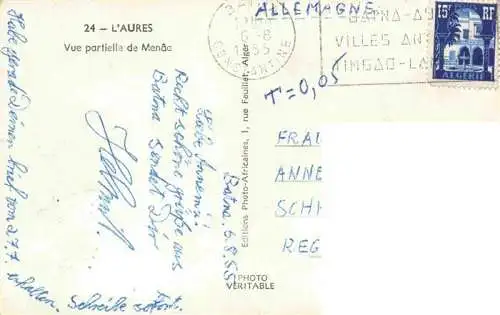 24 — L'AURES
Vue partielle de Menâa
Batna, 6.8.55
Liebe Annemie.
Recht schöne Grüße aus
Batna sendet Dir
Hellmut.
Hab gerade Deinen Brief vom 27.7. erhalten.
Schreibe sofort.
Editions Photo-Africaines, 1, rue Feuillet, Alger
PHOTO
VERITABLE
ALLEMAGNE
T=0,05
6-8
1955
CONSTANTINE
BATNA-
VILLES ANT
TIMGAD-LA
15F RF
ALGERIE
FRA
ANNE
SCH
REG